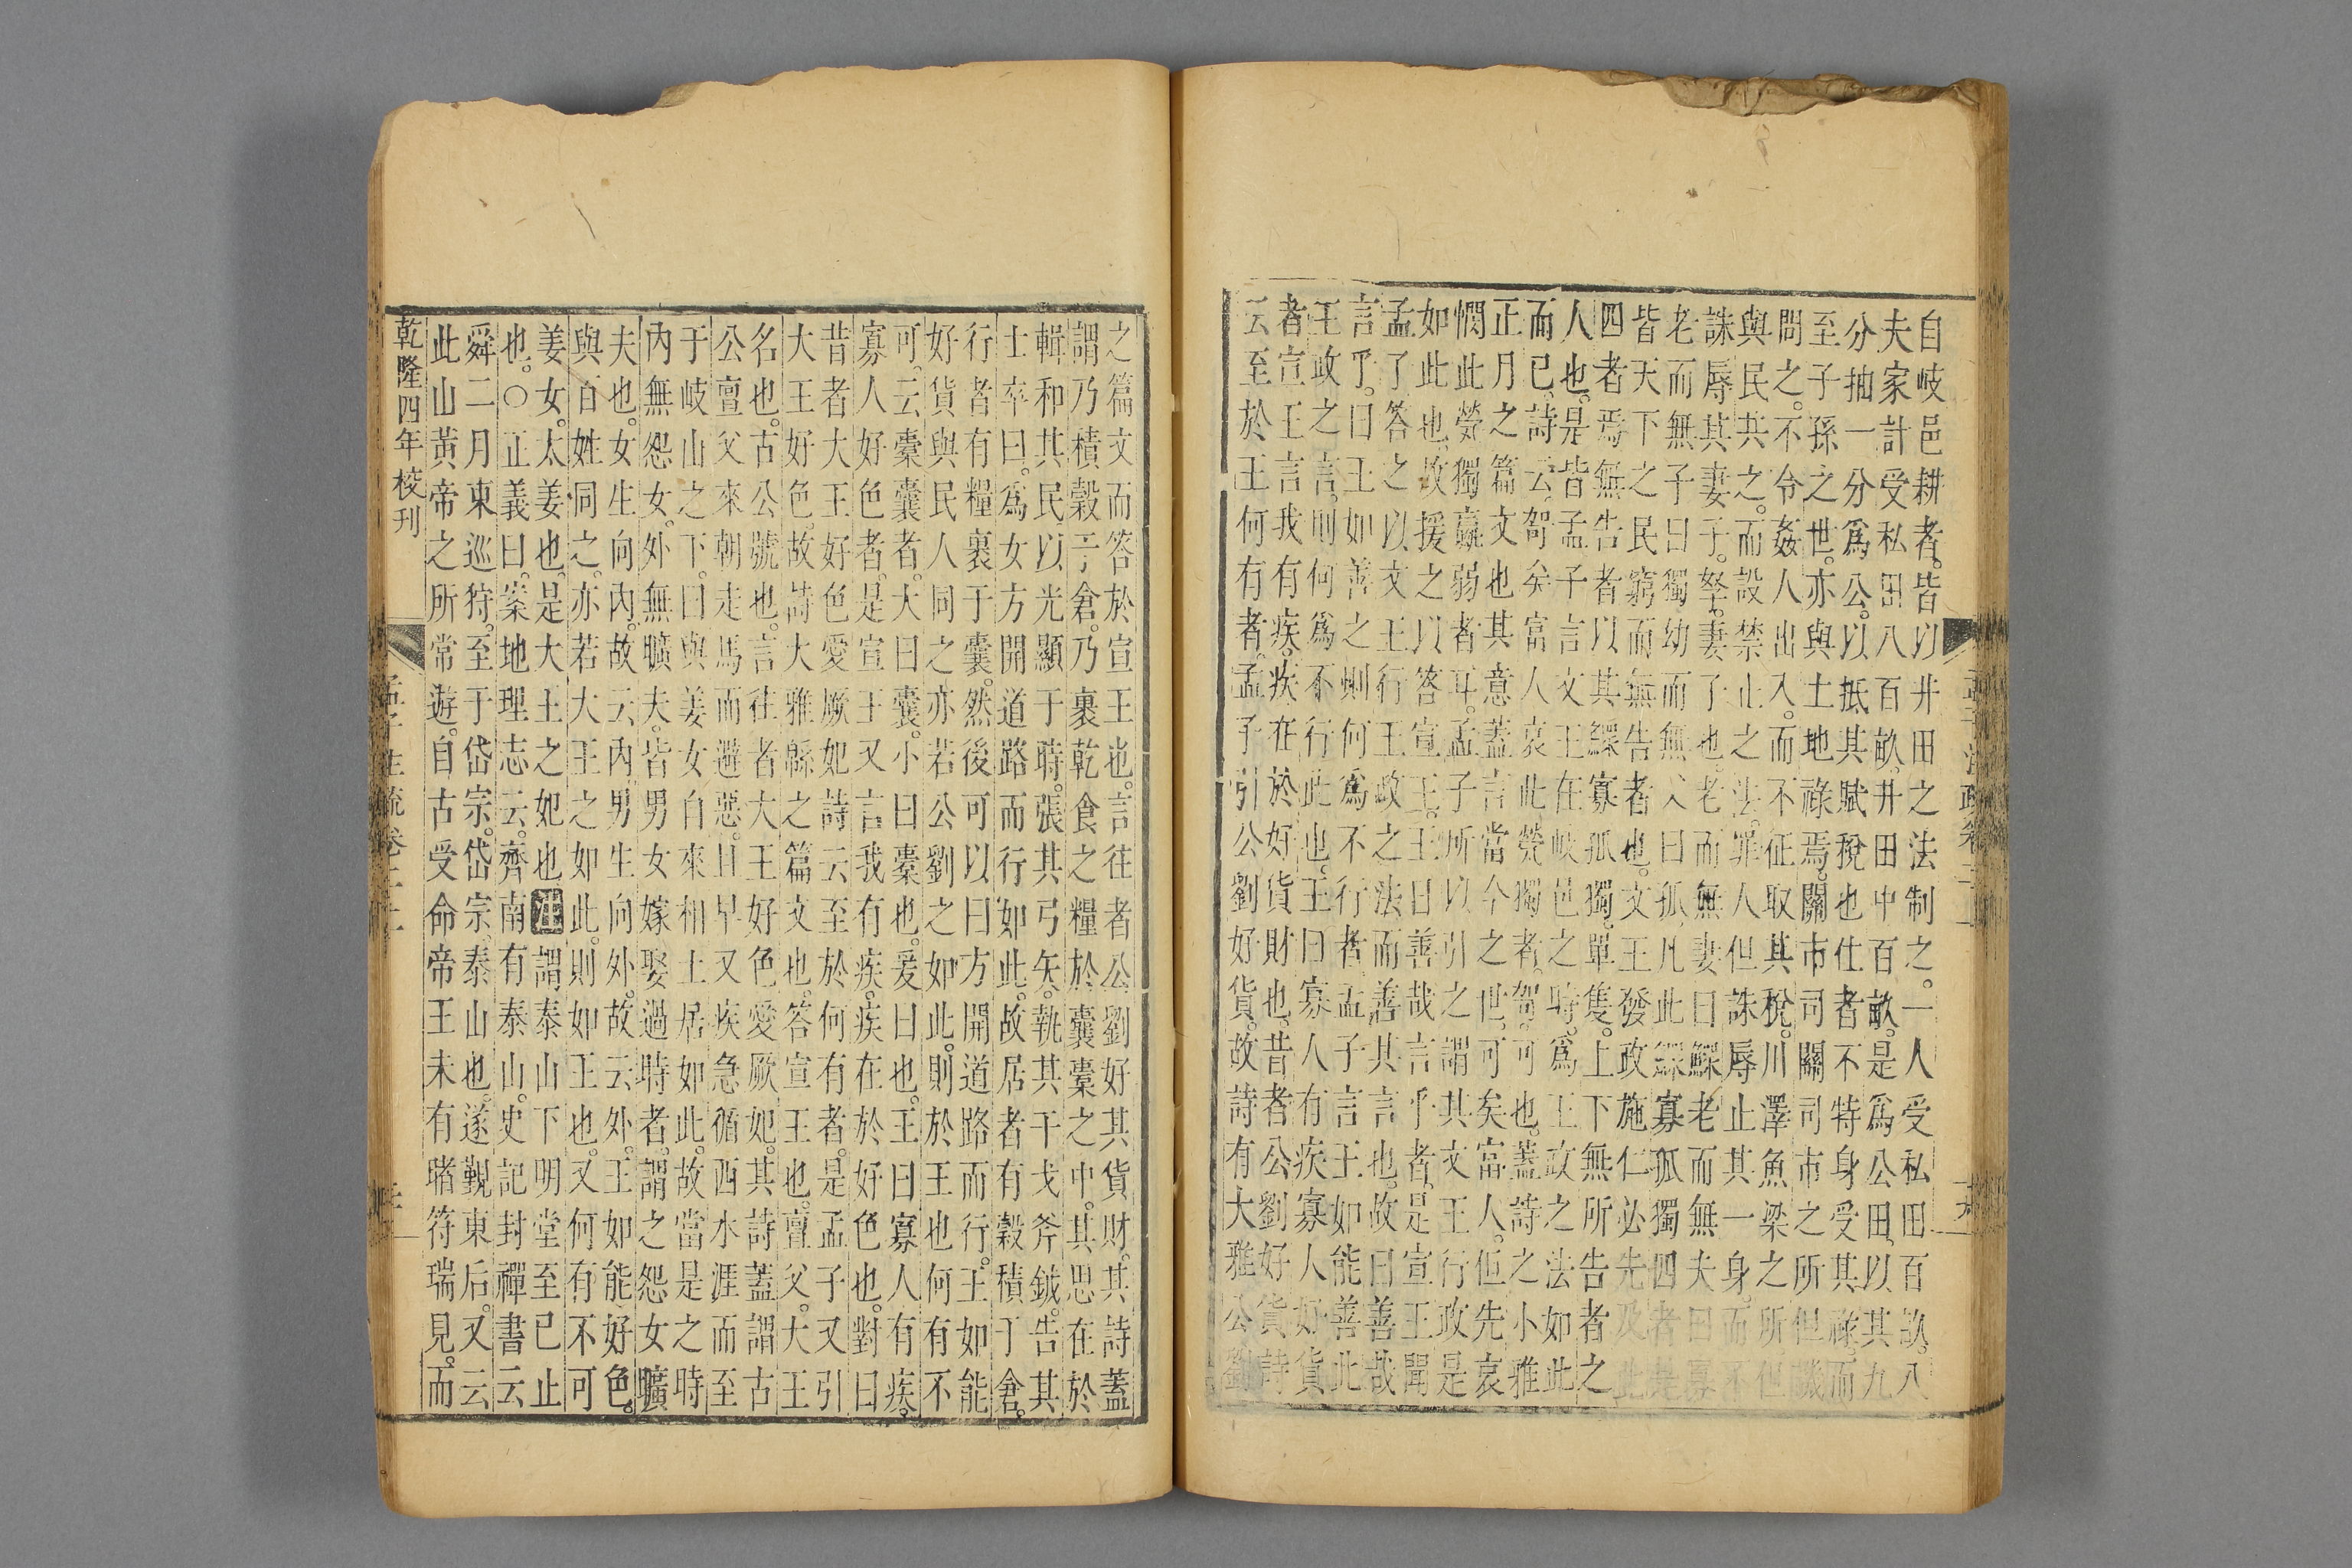 自岐邑耕者皆以井田之法制之。一人受私田百畝。八
夫家計受私田八百畝。井田中百畝。是爲公田。以其九
分抽一分爲公。以抵其賦稅也。仕者不特身受其祿。而
至子孫之世。亦與土地祿焉。關市司關司市之所。但譏
問之。不令姦人出入。而不征取其稅。川澤魚梁之所。但
與民共之。而設禁止之法。罪人但誅辱止其一身。而不
誅辱其妻子。孥。妻子也。老而無妻曰鰥。老而無夫曰寡。
老而無子曰獨。幼而無父曰孤。凡此鰥寡孤獨四者。是
皆天下之民窮而無告者也。文王發政施仁。必先及此
四者焉。無告者以其鰥寡孤獨。單隻。上下無所告者之
人也。是皆孟子言文王在岐邑之時。爲王政之法如此
而已。詩云。哿矣富人。哀此煢獨者。哿。可也。蓋詩之小雅
正月之篇文也。其意蓋言當今之世。可矣富人。但先哀
憫此煢獨羸弱者耳。孟子所以引之。謂其文王行政是
如此也。故援之以答宣王。王曰善哉言乎者。是宣王聞
孟子答之以文王行王政之法。而善其言也。故曰善哉
言乎。曰王如善之則何爲不行者。孟子言王如能善此
王政之言。則何爲不行此也。王曰寡人有疾寡人好貨
者。宣王言我有疾。疾在於好貨財也。昔者公劉好貨詩
云至於王何有者。孟子引公劉好貨。故詩有大雅公劉
之篇文而答於宣王也。言往者公劉好其貨財。其詩蓋
謂乃積穀于倉。乃裹乾食之糧於囊橐之中。其思在於
輯和其民。以光顯于時。張其弓矢。執其干戈斧鉞。告其
士卒曰。爲女方開道路而行。如此。故居者有穀積于倉。
行者有糧裹于囊。然後可以曰方開道路而行。王如能
好貨與民人同之。亦若公劉之如此。則於王也何有不
可。云橐囊者。大曰囊。小曰橐也。爰曰也。王曰寡人有疾。
寡人好色者。是宣王又言我有疾。疾在於好色也。對曰
昔者大王好色愛厥妃詩云至於何有者。是孟子又引
大王好色。故詩大雅緜之篇文也。答宣王也。亶父。大王
名也。古公號也。言往者大王好色。愛厥妃。其詩蓋謂古
公亶父來朝走馬而避惡。且早又疾急。循西水涯而至
于岐山之下。曰與姜女自來相土居如此。故當是之時
內無怨女。外無曠夫。皆男女嫁娶過時者。謂之怨女曠
夫也。女生向內。故云內。男生向外。故云外。王如能好色。
與百姓同之。亦若大王之如此。則如王也。又何有不可
姜女。太姜也。是大王之妃也。注謂泰山下明堂至已止
也。○正義曰。案地理志云。齊南有泰山。史記封禪書云
舜二月東巡狩。至于岱宗。岱宗。泰山也。遂覲東后。又云
此山黃帝之所常遊。自古受命帝王未有睹符瑞見。而
乾隆四年校刊